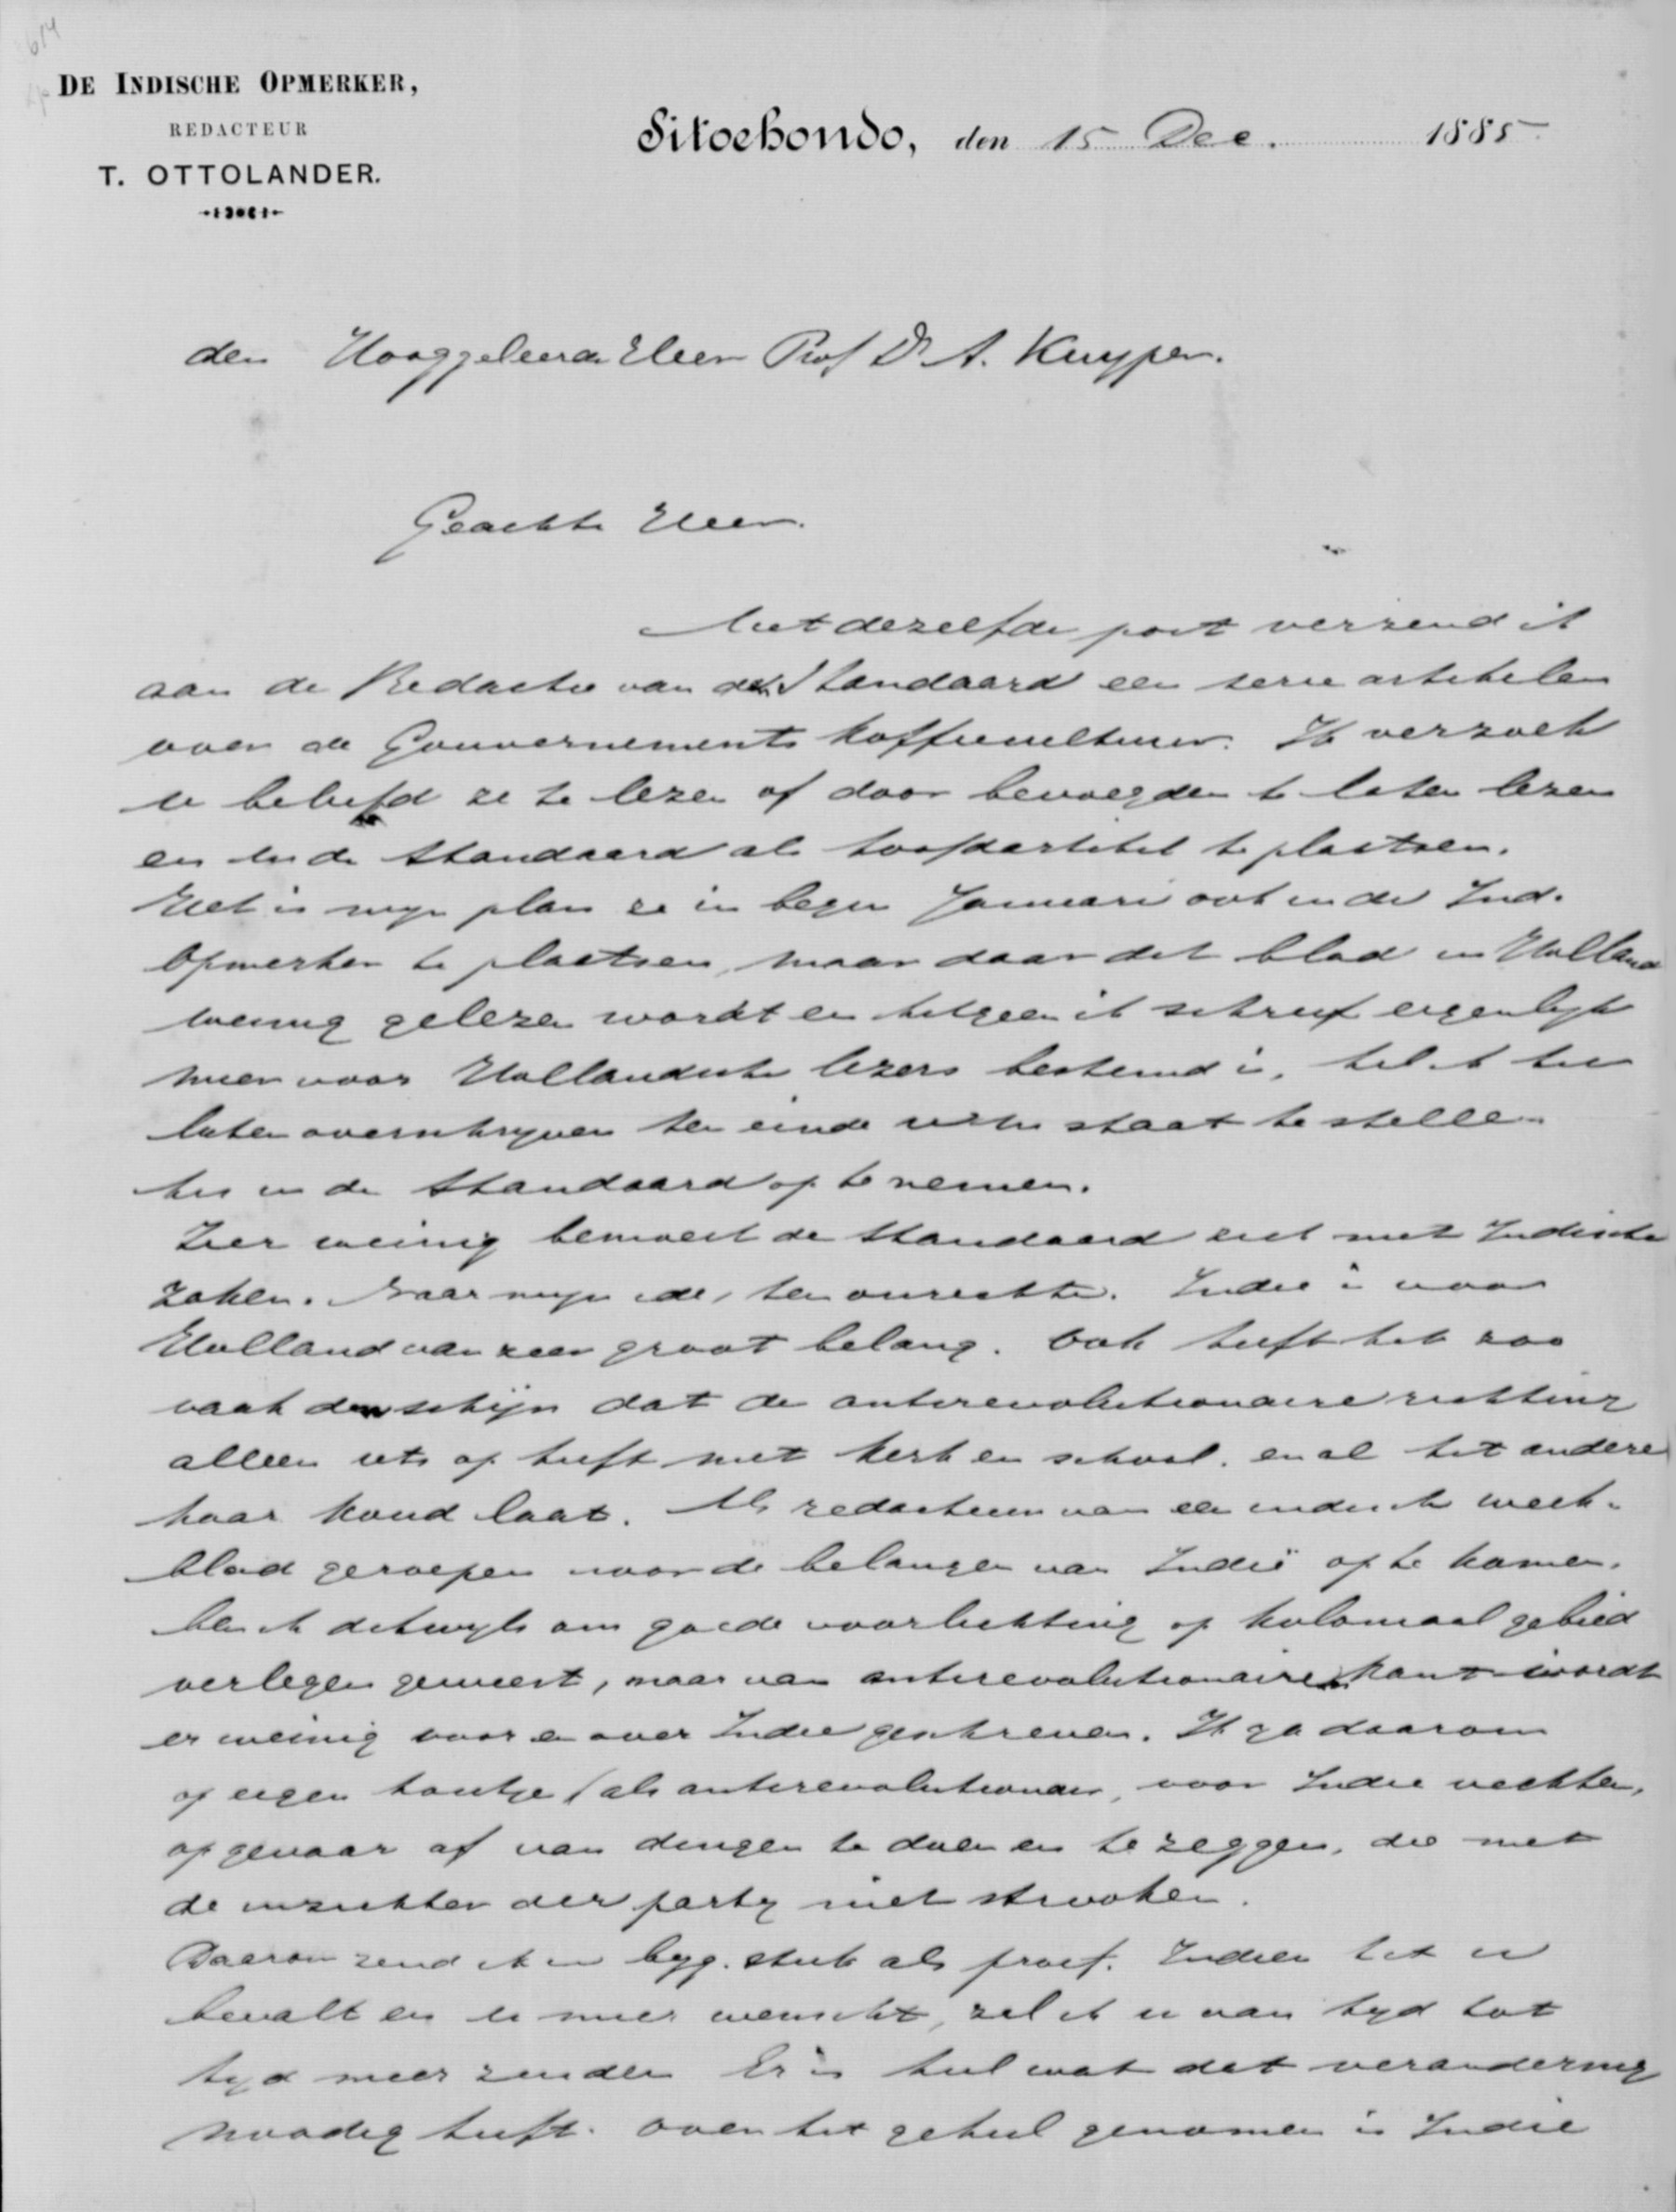 614
DE INDISCHE OPMERKER,
REDACTEUR
T. OTTOLANDER.
Sitoebondo, den 15 Dec. 1885
den Hooggeleerde Heer Prof Dr A. Kuyper.
Geachte Heer.
Met dezelfde post verzend ik
aan de Redactie van de Standaard een serie artikelen
over de Gouvernements koffiecultuur. Ik verzoek
u beleefd ze te lezen of door bevoegden te laten lezen
en in de Standaard als hoofdartikel te plaatsen.
Het is mijn plan ze in begin Januari ook in de Ind.
Opmerker te plaatsen, maar daar dat blad in Holland
weinig gelezen wordt en hetgeen ik schreef eigenlijk
meer voor Hollandsche lezers bestemd is, heb ik hen
laten overschrijven ten einde u in staat te stellen
hen in de Standaard op te nemen.
Zeer weinig bemoeit de Standaard zich met Indische
zaken. Naar mijn idee, ten onrechte. Indie is voor
Holland van zeer groot belang. Ook heeft het zoo
vaak den schijn dat de antirevolutionaire richting
alleen iets op heeft met kerk en school. en al het andere
haar koud laat. Als redacteur van een indisch week-
blad geroepen voor de belangen van Indië op te komen,
ben ik dikwijls om goede voorlichting op koloniaal gebied
verlegen geweest, maar van antirevolutionaire kant wordt
er weinig voor en over Indie geschreven. Ik ga daarom
op eigen houtje (als antirevolutionair, voor Indie vechten,
op gevaar af van dingen te doen en te zeggen, die met
de inzichten der party niet strooken.
Daarom zend ik u byg. stuk als proef. Indien het u
bevalt en u meer wenscht, zal ik u van tyd tot
tyd meer zenden Er is heel wat dat verandering
noodig heeft. Over het geheel genomen is Indie